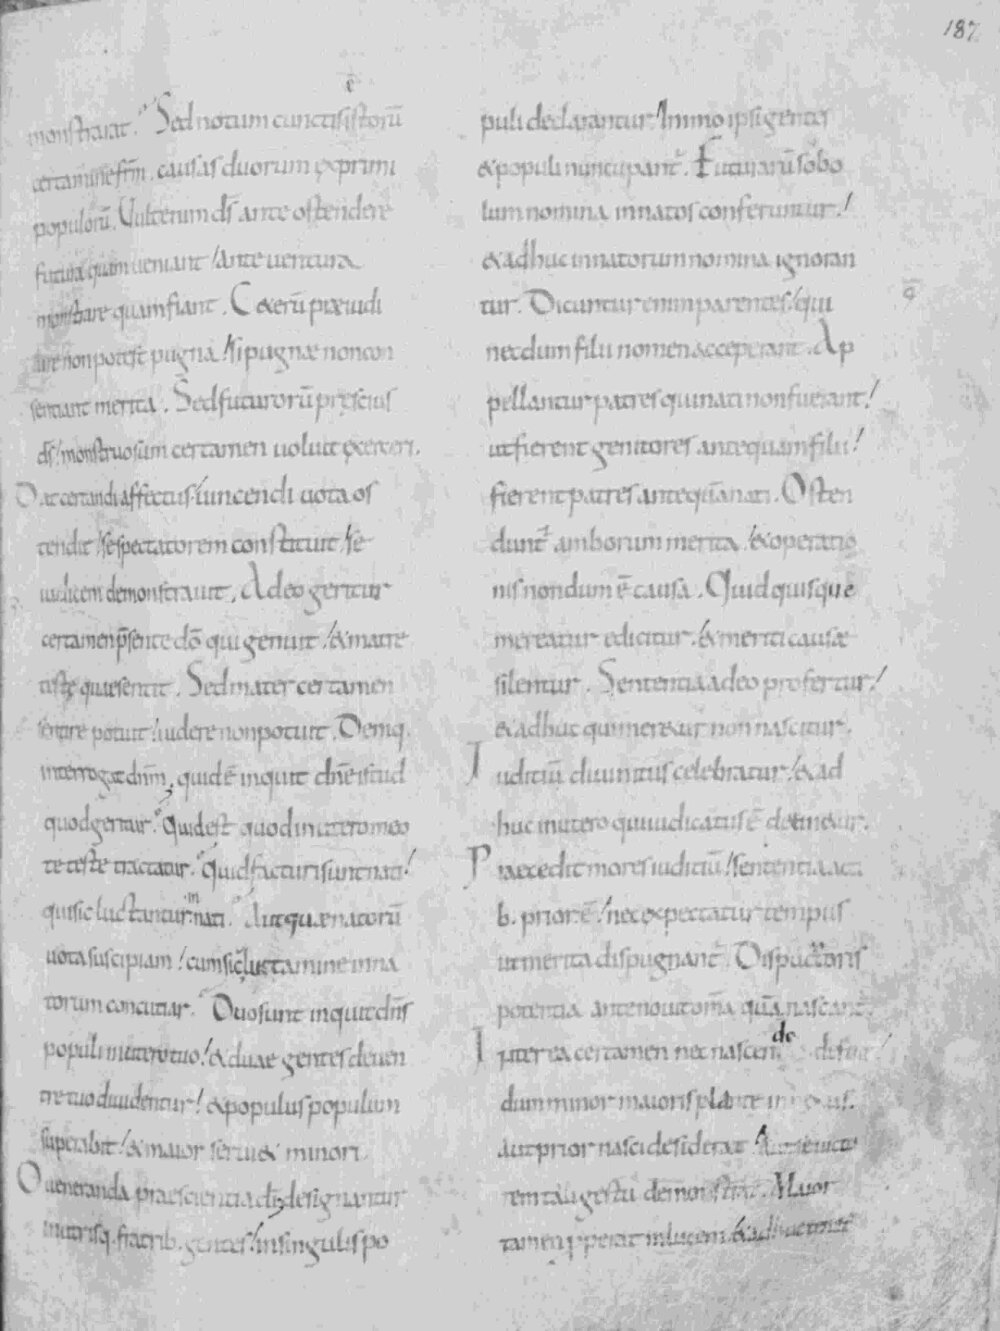 187
monstrarat. Sed notum cunctis istorū
certamine frm̄. causas duorum exprimi
populorū. Uult enim ds̄ ante ostendere
futura quam ueniant / ante uentura
monstrare quam fiant. Ceterū preiudi
care non potest pugna / si pugnae non con
sentiant merita. Sed futurorū prescius
ds̄ / monstruosum certamen uoluit exerceri.
Dat certandi affectus / uincendi uota os
tendit / se spectatorem constituit / se
iudicem demonstrauit. Adeo geritur
certamen p̄sente dō qui genuit / & matre
teste quae sentit. Sed mater certamen
sentire potuit / uidere non potuit. Deniq.
interrogat dnm̄, quid ē inquit dnē istud
quod geritur. Quid est quod in utero meo
te teste tractatur. Quid facturi sunt nati /
qui sic luctantur innati. Aut quae natorū
uota suscipiam / cum sic luctamine inna
torum concutiar. Duo sunt inquit dns̄
populi in utero tuo / & duae gentes de uen
tre tuo diuidentur / & populus populum
superabit / & maior seruiet minori.
O ueneranda praescientia di; designantur
in utrisq. fratrib. gentes / in singulis po
puli declarantur / Immo ipsi gentes
& populi nuncupant̄. Futurarū sobo
lum nomina innatos conferuntur /
& adhuc innatorum nomina ignoran
tur. Dicuntur enim parentes / qui
necdum filii nomen acceperant. Ap
pellantur patres qui nati non fuerant /
ut fierent genitores antequam filii /
fierent patres antequā nati. Osten
dunt̄ amborum merita / & operatio
nis nondum ē causa. Quid quisque
mereatur edicitur / & meriti causae
silentur. Sententia adeo profertur /
& adhuc qui meretur non nascitur.
Iuditiū diuinitus celebratur / & ad
huc in utero qui iudicatus ē detinetur.
Praecedit mores iuditiū / sententia acti
b. prior ē / nec expectatur tempus
ut merita dispugnant̄. Disputatoris
potentia ante nouit om̄a quā nascant̄.
Interea certamen nec nascendo
dum minor maioris plante
aut prior nasci desiderat /
rem tali gestū demonstrat. Maior
tamen p̄perat in lucem / & adhuc